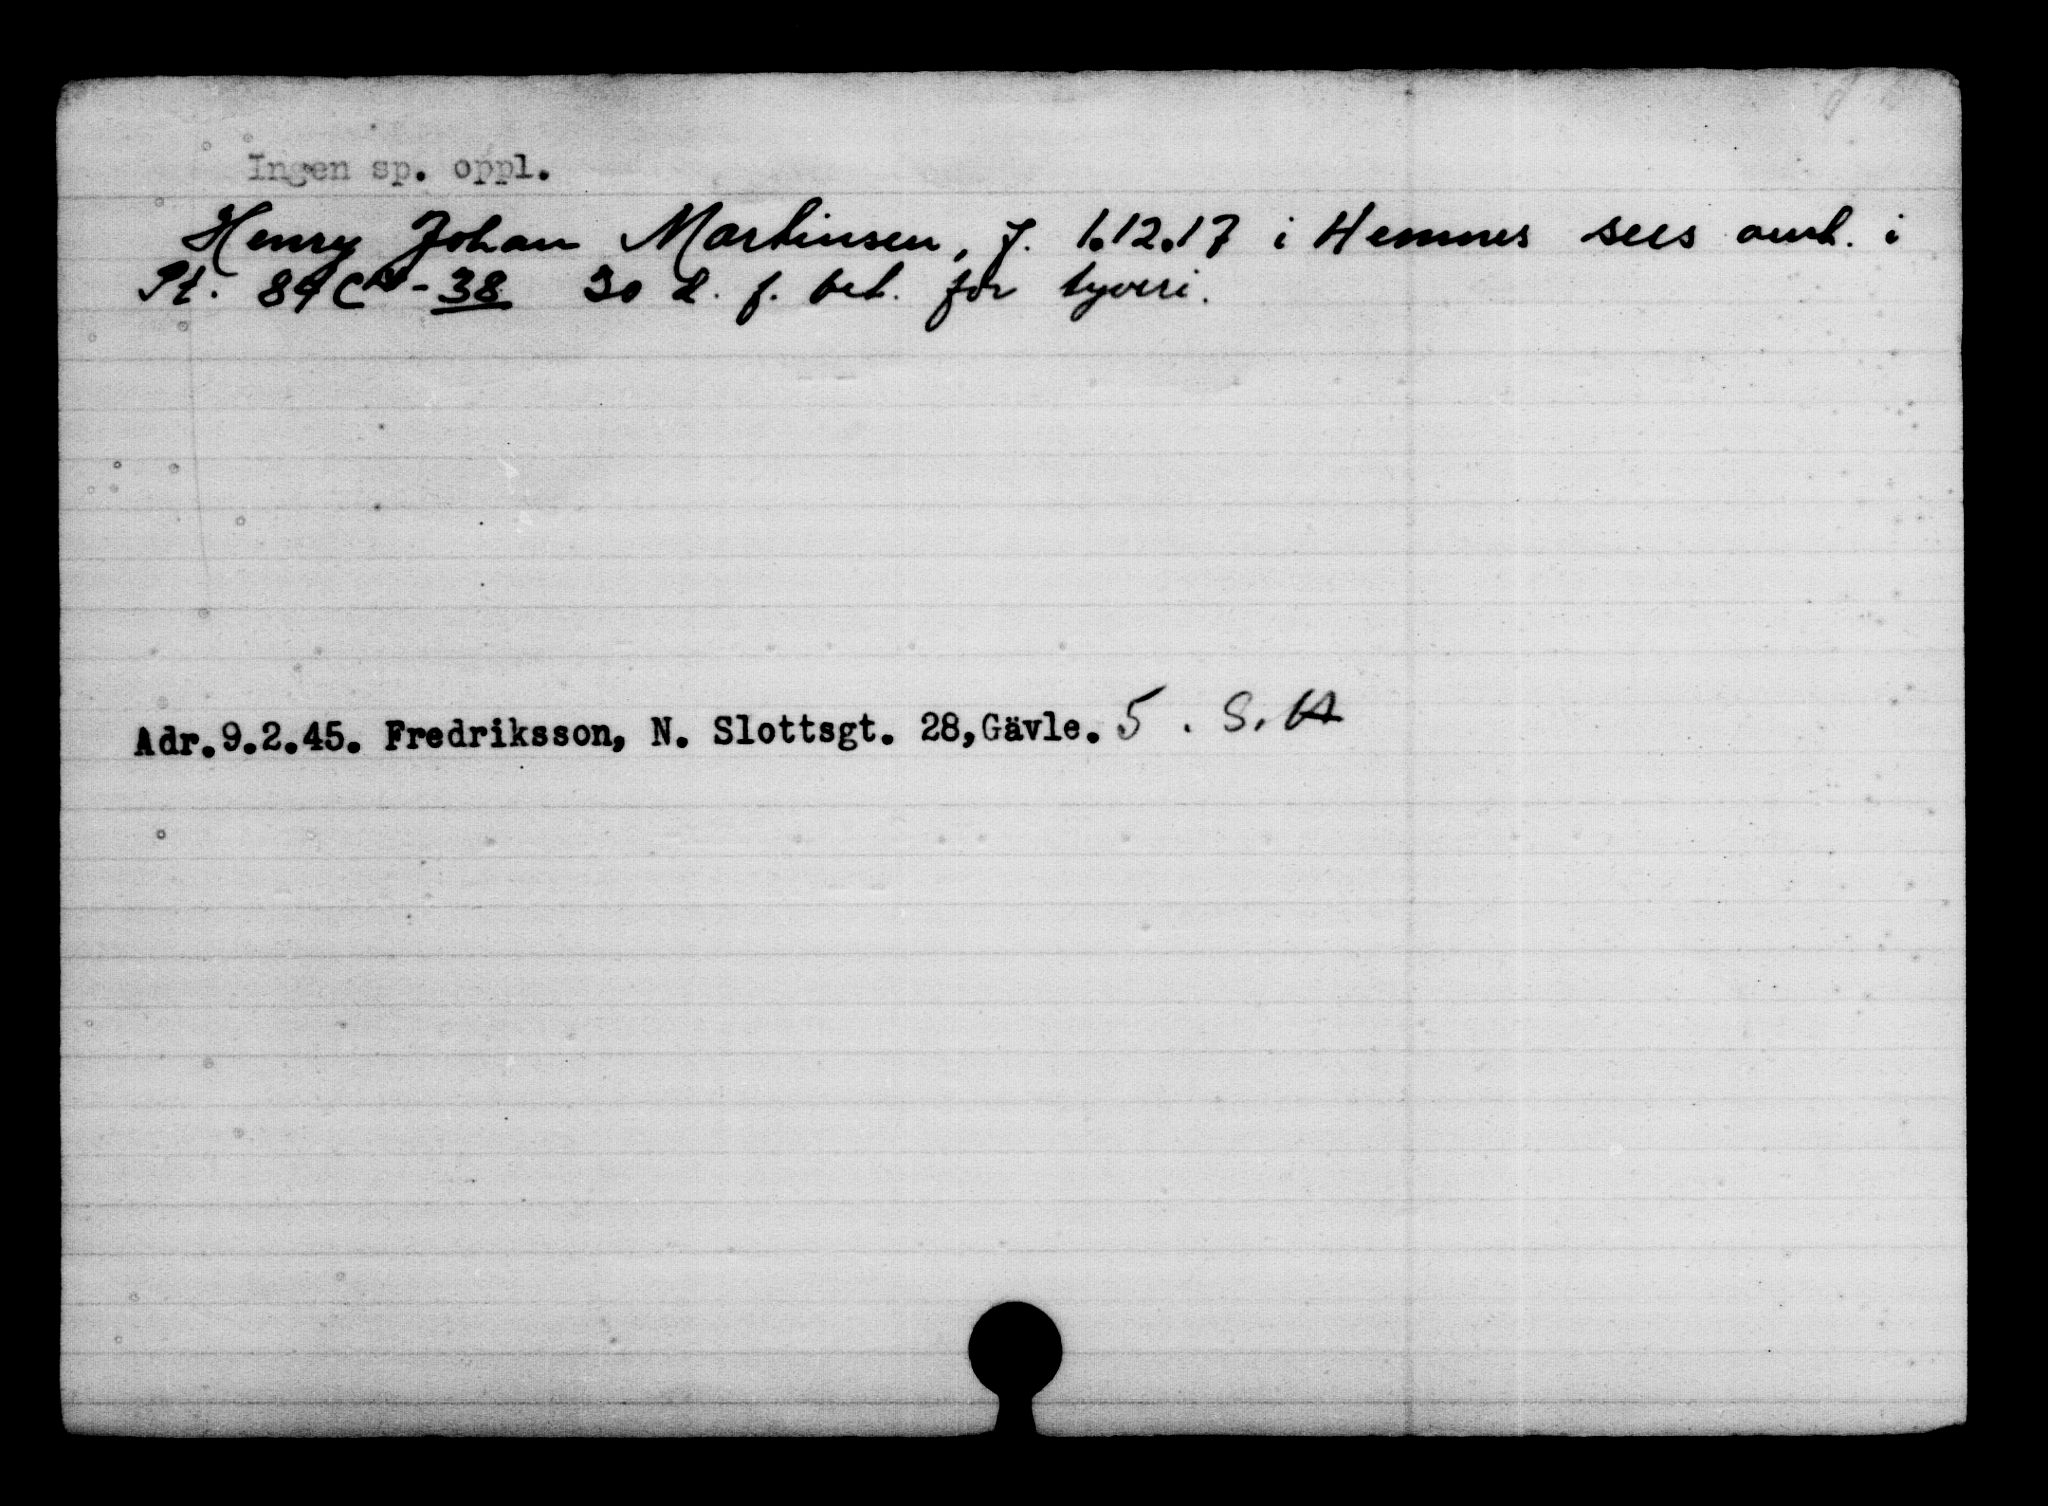 Ingen sp. oppl.
Henry Johan Martinsen, f. 1.12.17 i Hemnes sees omt. i
Pt. 89 - 38 30 d. f. bet. for tyveri.
Adr.9.2.45. Fredriksson, N. Slottsgt. 28,Gävle. 5 . S.